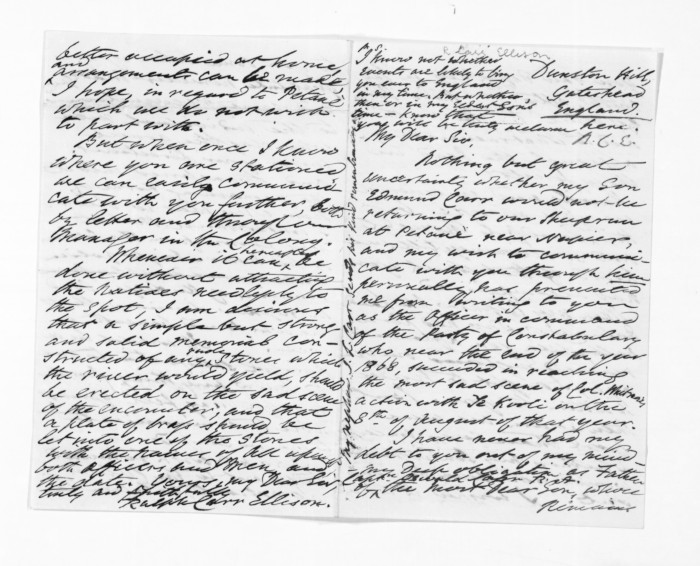 R. Carr Ellison
P.S.
I know not whether
events are likely to bring
you ever to England
in my time, But whether
then or in my Eldest Son's
time – know that
you will be truly welcome here.
R. C. E.
Dunston Hill,
Gateshead
England.
My Dear Sir,
Nothing but great
uncertainty whether my Son
Edmund Carr would not be
returning to our Sheeprun
at Petane near Napier,
and my wish to communi-
cate with you through him
personally, has prevented
me from writing to you
as the officer in command
of the Party of Constabulary
who near the end of the year
1868, succeeded in reaching
the most sad scene of Col. Whitmore's
action with Te Kooti on the
8th of August of that year.
I have never had my
debt to you out of my mind
my Deep obligation as Father
of Capt.
the most dear son, whose
remains
better occupied at home,
and arrangements can be made
I hope, in regard to Petane
which we do not wish
to part with.
But when once I know
where you are stationed
we can easily communi-
cate with you further, both
by letter and through our
Manager in the Colony.
Whenever it can hereafter be
done without attracting
the Natives needlessly to
the spot, I am desirous
that a simple but strong
and solid memorial con-
structed of any rude stones which
the river would yield, should
be erected on the sad scene
of the encounter, and that
a plate of brass should be
let into one of the stones
with the names of all
both officers and Men, and
the date. Yours, my Dear Sir,
truly and
Ralph Carr Ellison.
my nephew
kind remembrances